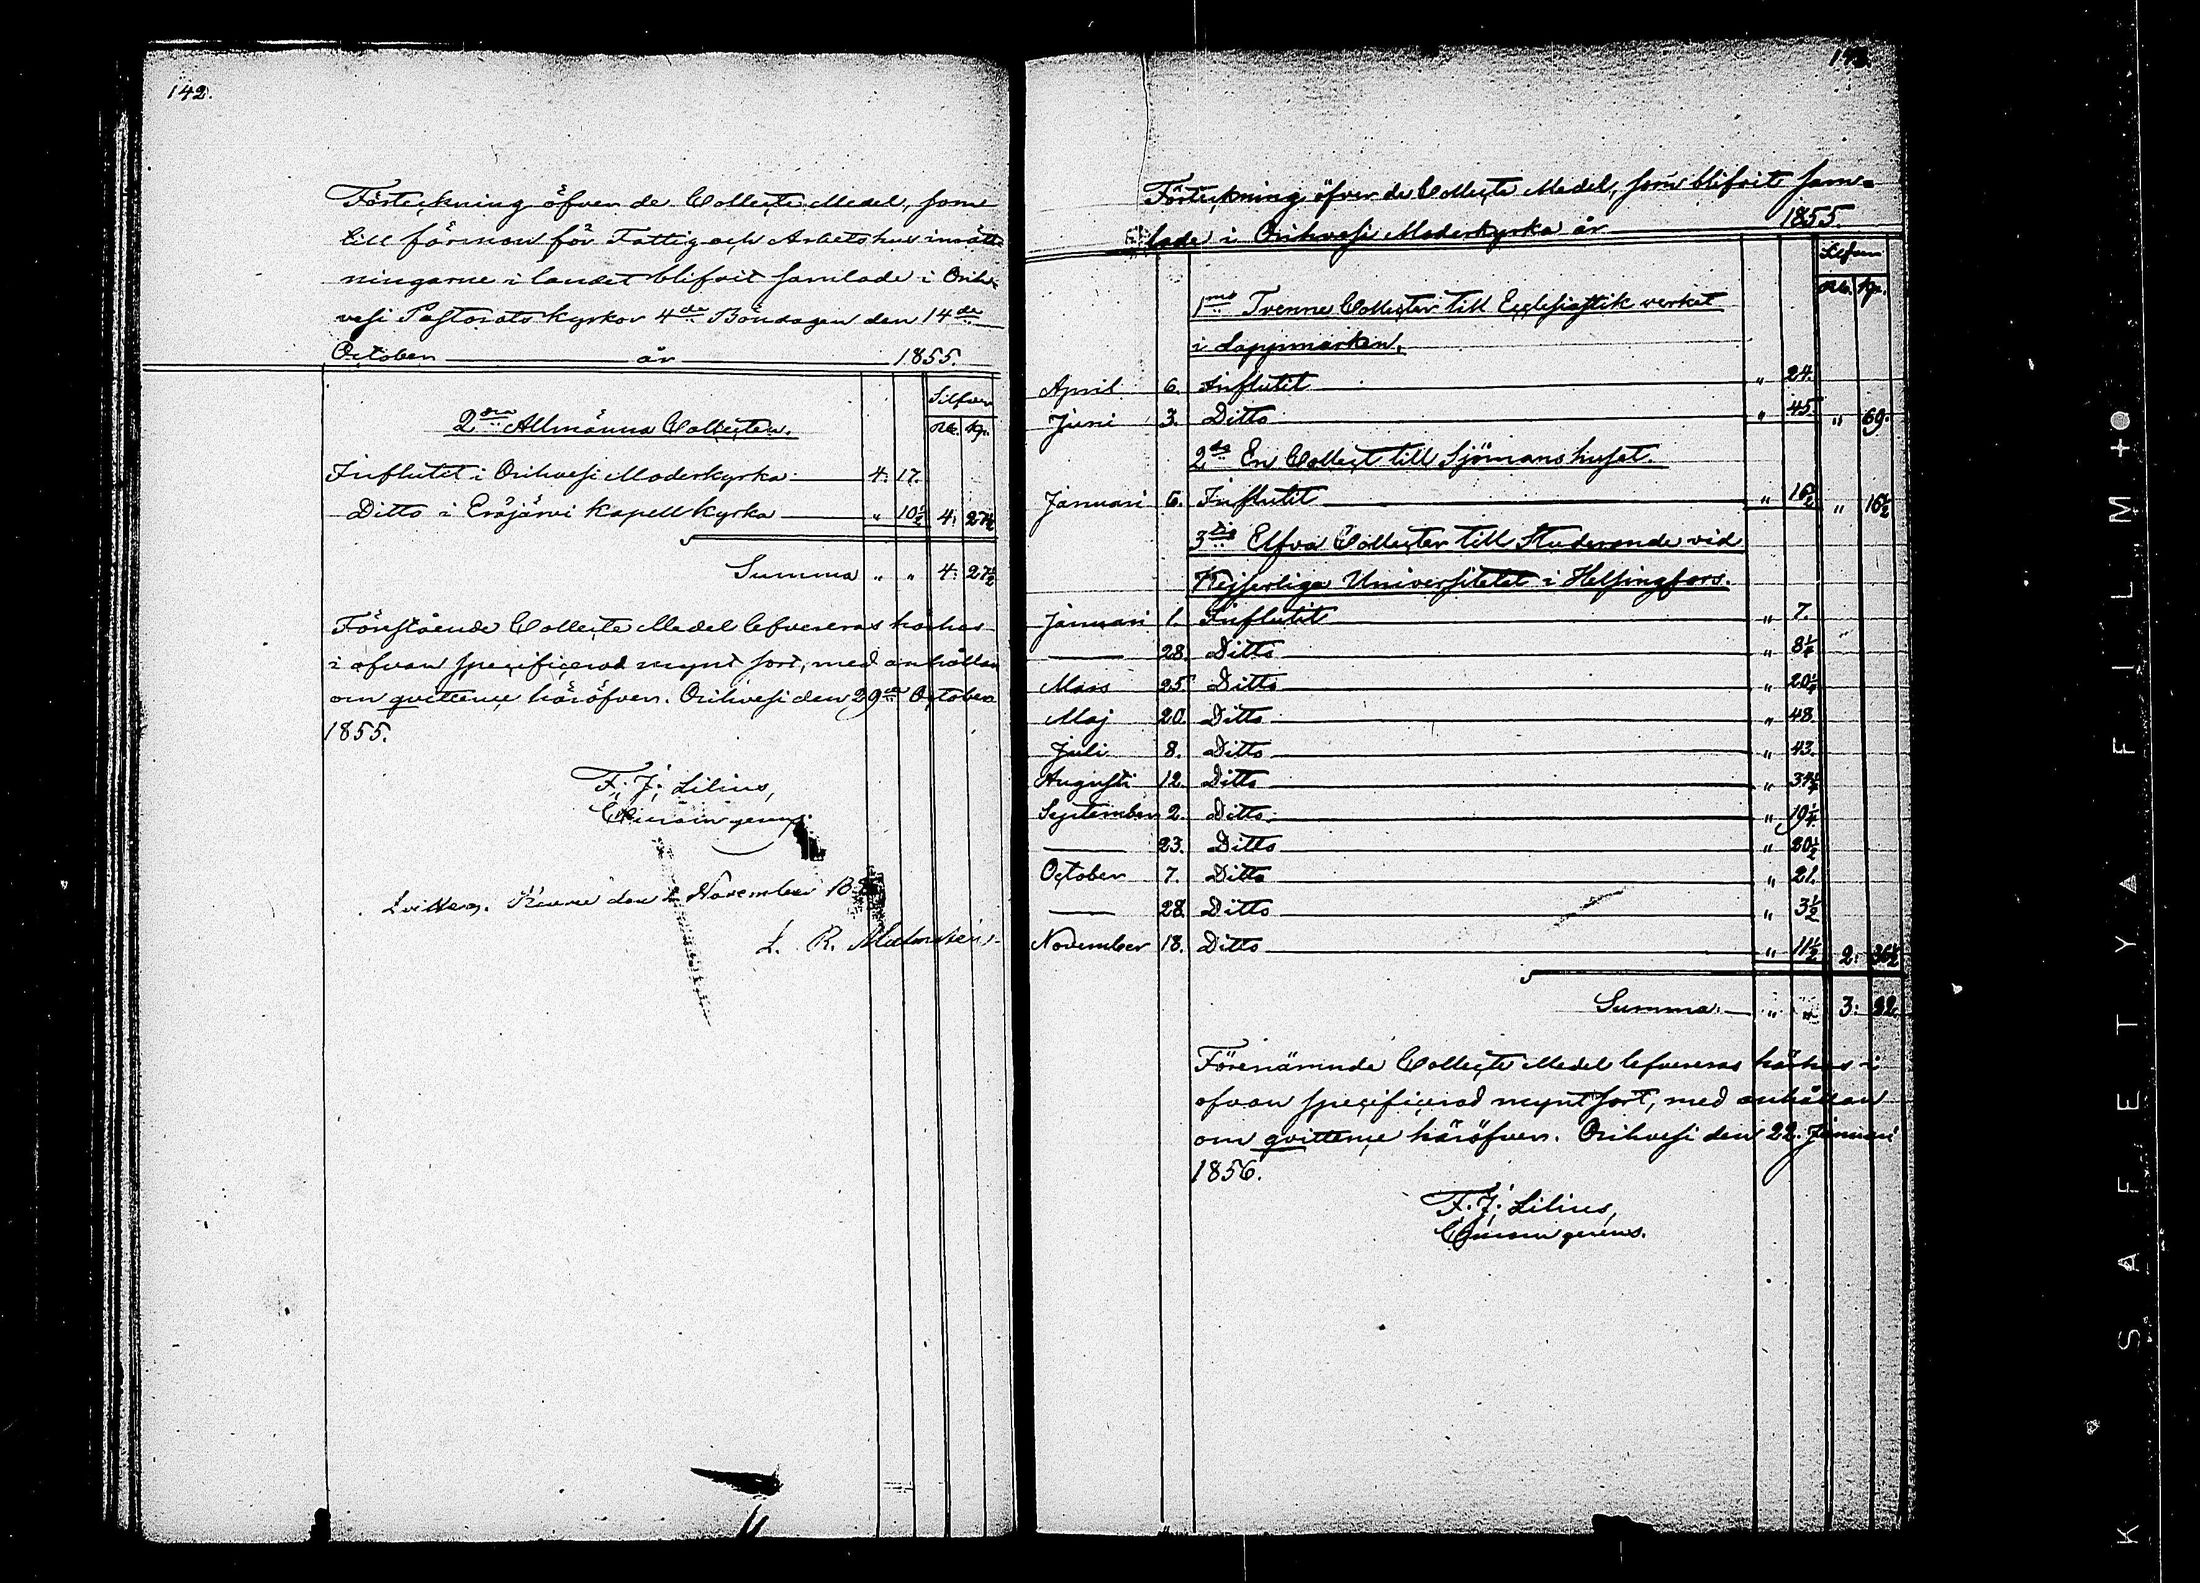 142.
Förteckning öfver de Collecte Medel, some
till förmon för Fattig och Arbetshus inrätt-
ningarne i landet blifvit samlade i Orih-
vesi Pastorats kyrkor 4de Böndagen den 14de
October år 1855.
Silfver
Rub. Kp.
2dra Allmänna Collecten.
Influtet i Orihvesi Moderkyrka 4. 17.
Ditto i Eräjärvi Kapell kyrka " 10 1/2 4. 27 1/2
Summa " " 4. 27 1/2
Förestående Collecte Medel lefvereras härhos
i ofvan specificerad mynt sort, med anhållan
om qvittence häröfver. Orihvesi den 29de October
1855.
F. J. Lilius,
den November
L. R. Malmstén
143
Förteckning öfver de Collecte Medel, som blifvit sam-
lade i Orihvesi Moderkyrka år 1855.
Silfver
Rub. Kp.
1mo Tvenne Collecter till Ecclesiastik verket
i Lappmarken.
April 6. Influtit " 24.
Juni 3. Ditto " 45. " 69.
2do En Collect till Sjömanshuset.
Januari 6. Influtit " 16 1/2 " 16 1/2
3tio Elfva Collecter till Studerande vid
Kejserliga Universitetet i Helsingfors.
Januari 1. Influtit " 7.
— 28. Ditto " 8 1/4
Mars 25. Ditto " 20 1/4
Maj 20. Ditto " 48.
Juli 8. Ditto " 43.
Augusti 12. Ditto " 34 1/4
September 2. Ditto " 19 1/4
— 23. Ditto " 20 1/2
October 7. Ditto " 21.
— 28. Ditto " 3 1/2
November 18. Ditto " 11 1/2 2. 36 1/2
Summa " " 3. 22.
Förenämnde Collecte Medel lefvereras härhos i
ofvan specificerad myntsort, med anhållan
om qvittence häröfver. Orihvesi den 22. Januari
1856.
F. J. Lilius,
K SAFETY FILM